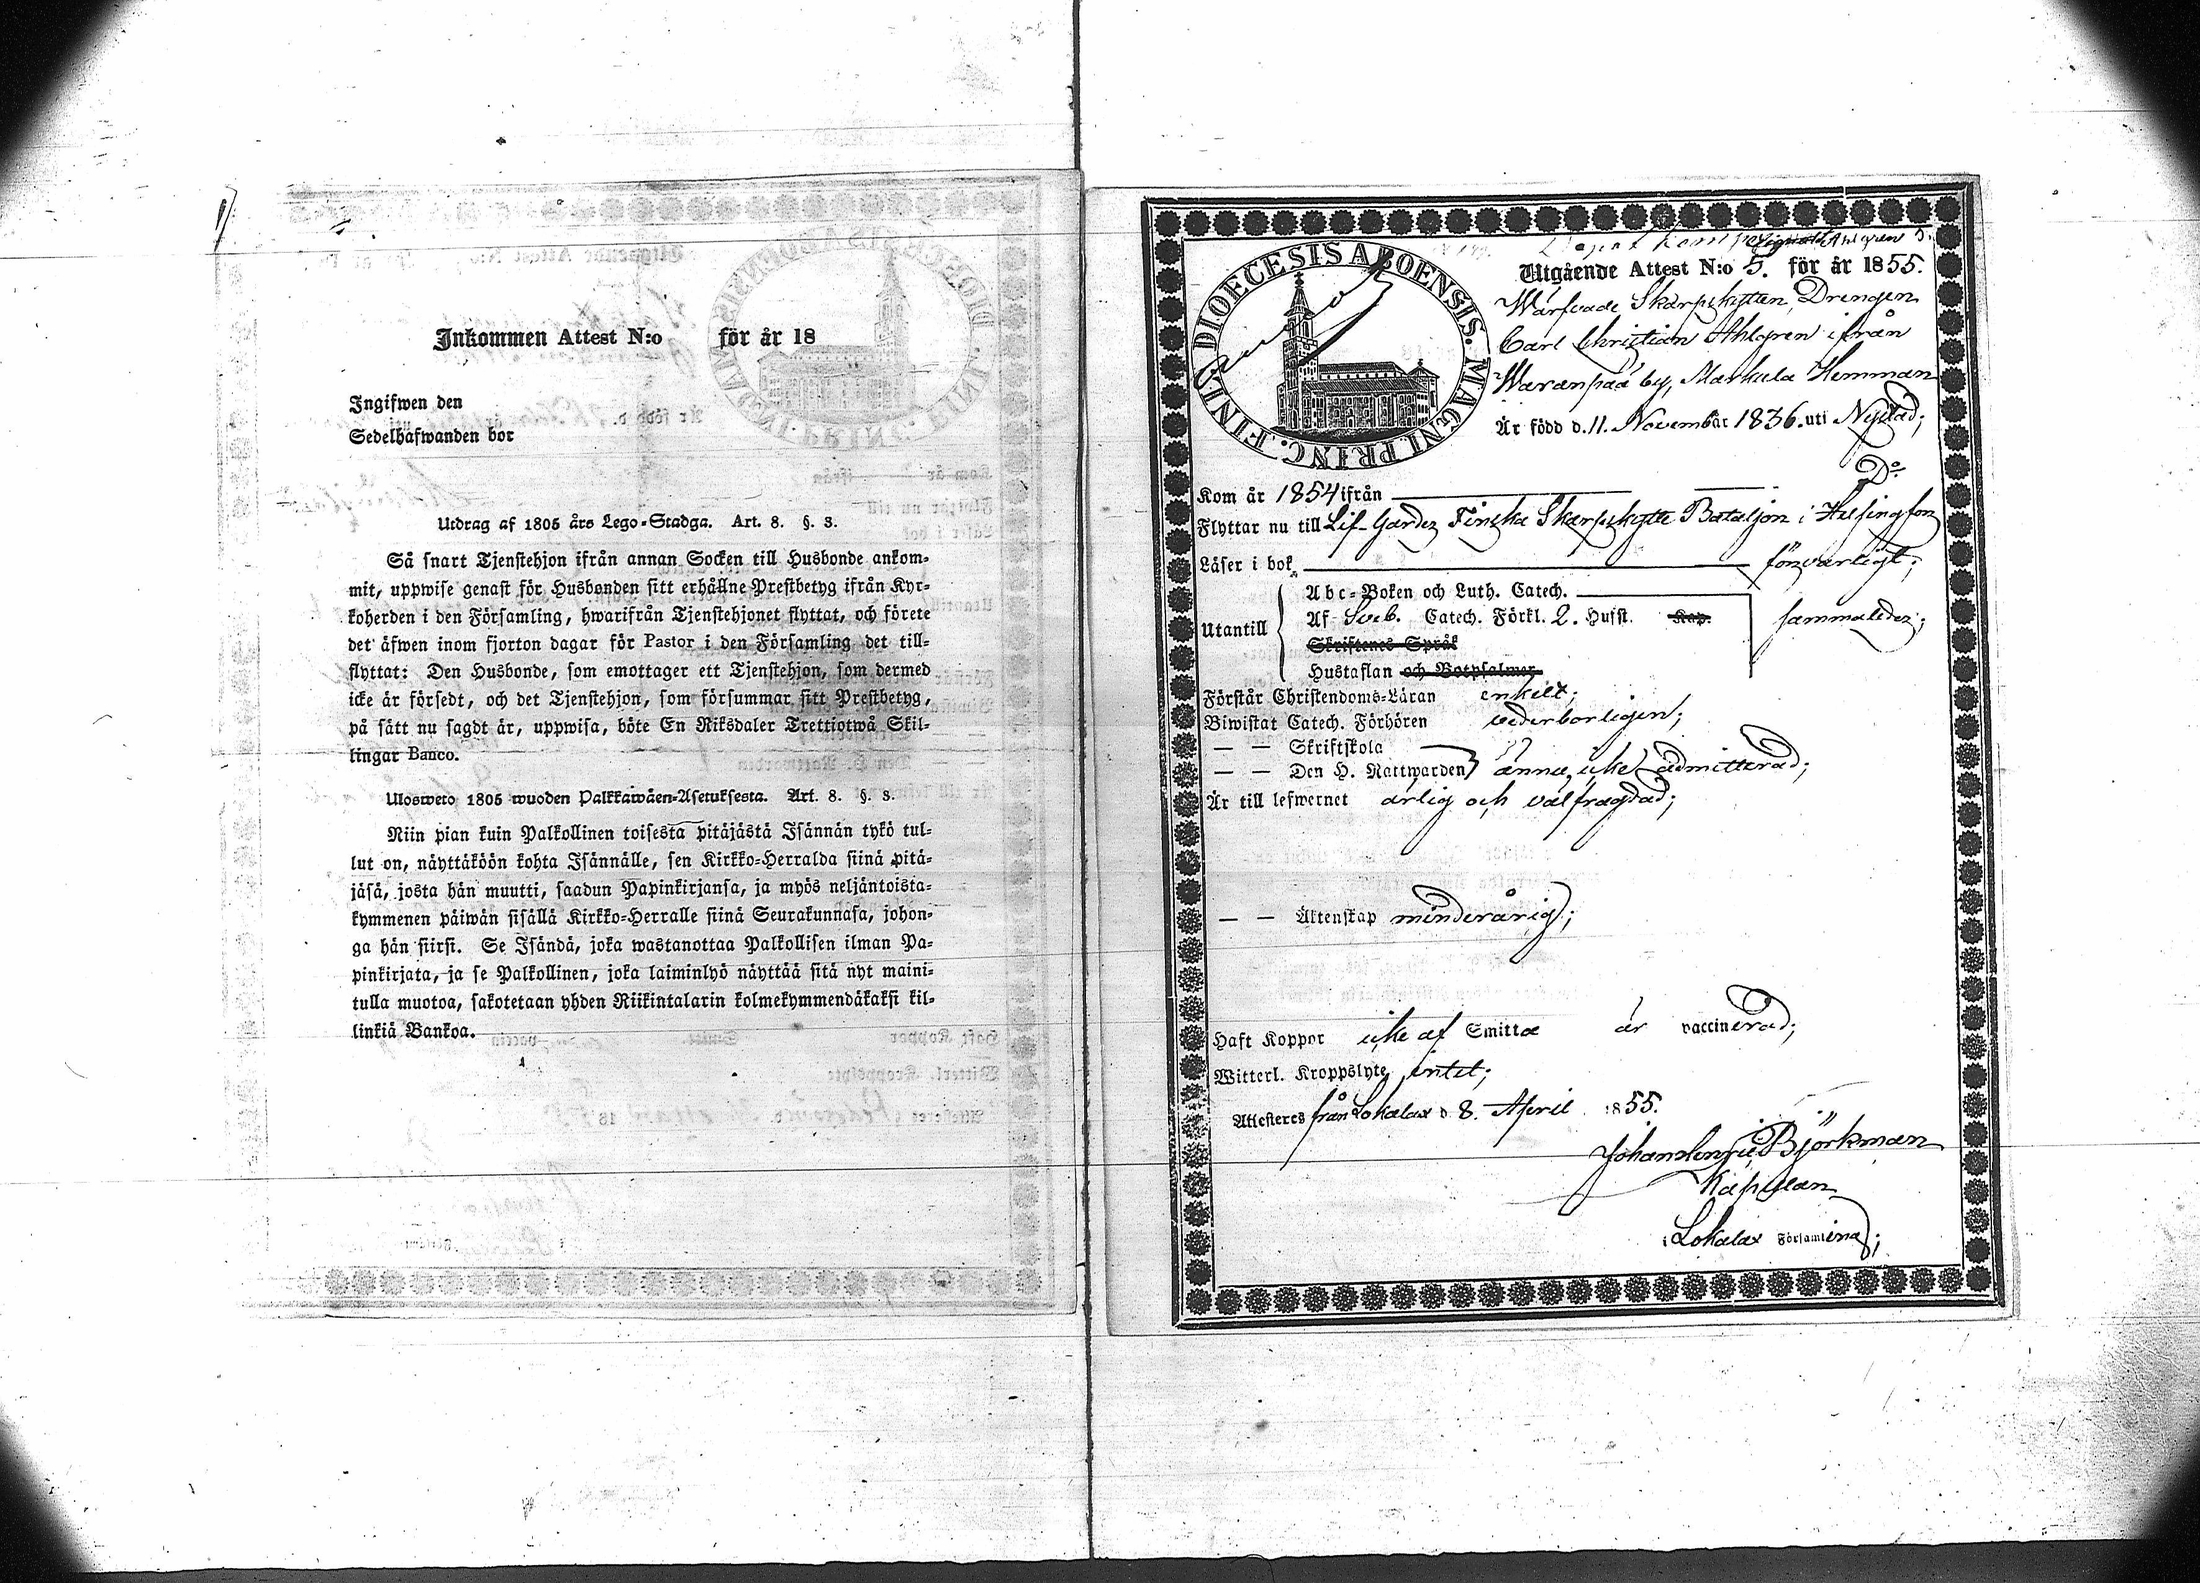 Inkommen Attest N:o för år 18
Ingifwen den
Sedelhafwanden bor
Utdrag af 1805 års Lego-Stadga. Art. 8. §. 3.
Så snart Tjenstehjon ifrån annan Socken till Husbonde ankom-
mit, uppwise genast för Husbonden sitt erhållne Prestbetyg ifrån Kyr-
koherden i den Församling, hwarifrån Tjenstehjonet flyttat, och förete
det äfwen inom fjorton dagar för Pastor i den Församling det till-
flyttat: Den Husbonde, som emottager ett Tjenstehjon, som dermed
icke är försedt, och det Tjenstehjon, som försummar sitt Prestbetyg,
på sätt nu sagdt är, uppwisa, böte En Riksdaler Trettiotwå Skil-
lingar Banco.
Ulosweto 1805 wuoden Palkkawäen-Asetuksesta. Art. 8. §. 3.
Niin pian kuin Palkollinen toisesta pitäjästä Isännän tykö tul-
lut on, näyttäköön kohta Isännälle, sen Kirkko-Herralda siinä pitä-
jäsä, josta hän muutti, saadun Papinkirjansa, ja myös neljäntoista-
kymmenen päiwän sisällä Kirkko-Herralle siinä Seurakunnasa, johon-
ga hän siirsi. Se Isändä, joka wastanottaa Palkollisen ilman Pa-
pinkirjata, ja se Palkollinen, joka laiminlyö näyttää sitä nyt maini-
tulla muotoa, sakotetaan yhden Riikintalarin kolmekymmendäkaksi kil-
linkiä Bankoa.
DIOECESIS ABOENSIS. MAGNI PRINC. FINL.
Ahlgren 5.
Utgående Attest N:o 5. för år 1855.
Wärfvade Skarpskytten, Drengen
Carl Christian Ahlgren ifrån
Waranpää by, Markula Hemman
Är född d. 11. November 1836. uti Nystad;
Kom år 1854 ifrån Do
Flyttar nu till Lif-Gardes Finska Skarpskytte Bataljon i Helsingfors
Läser i bok försvarligt;
Utantill
Abc-Boken och Luth. Catech.
Af Sveb. Catech. Förkl. 2. Hufst. Kap. sammaledes;
Skriftenes Språk
Hustaflan och Botpsalmer
Förstår Christendoms-Läran enkelt;
Biwistat Catech. Förhören vederbörligen;
— — Skriftskola
— — Den H. Nattwarden ännu icke admitterad;
Är till lefwernet ärlig och välfrägdad;
— — Äktenskap minderårig;
Haft Koppor icke af Smitta är vaccinerad;
Witterl. Kroppslyte intet;
Attesteres från Lokalax d. 8. April 1855.
Björkman
Kapellan
i Lokalax Församling;